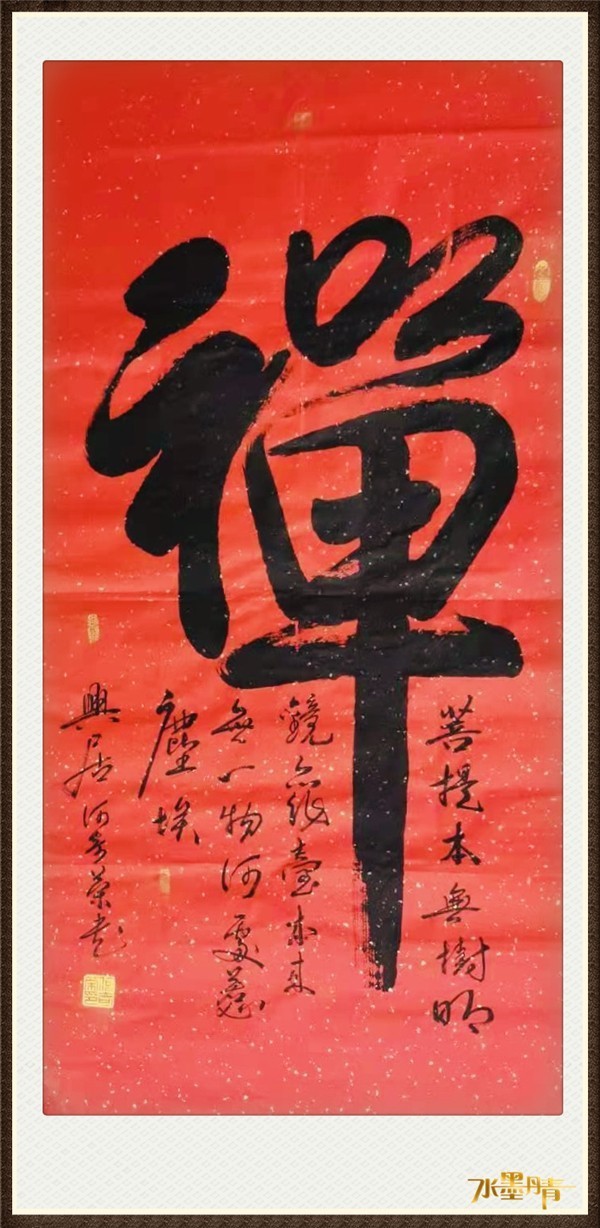 禪
菩提本無樹明
鏡亦非臺本來
無一物何處惹
塵埃
興居何榮书
水墨丹青